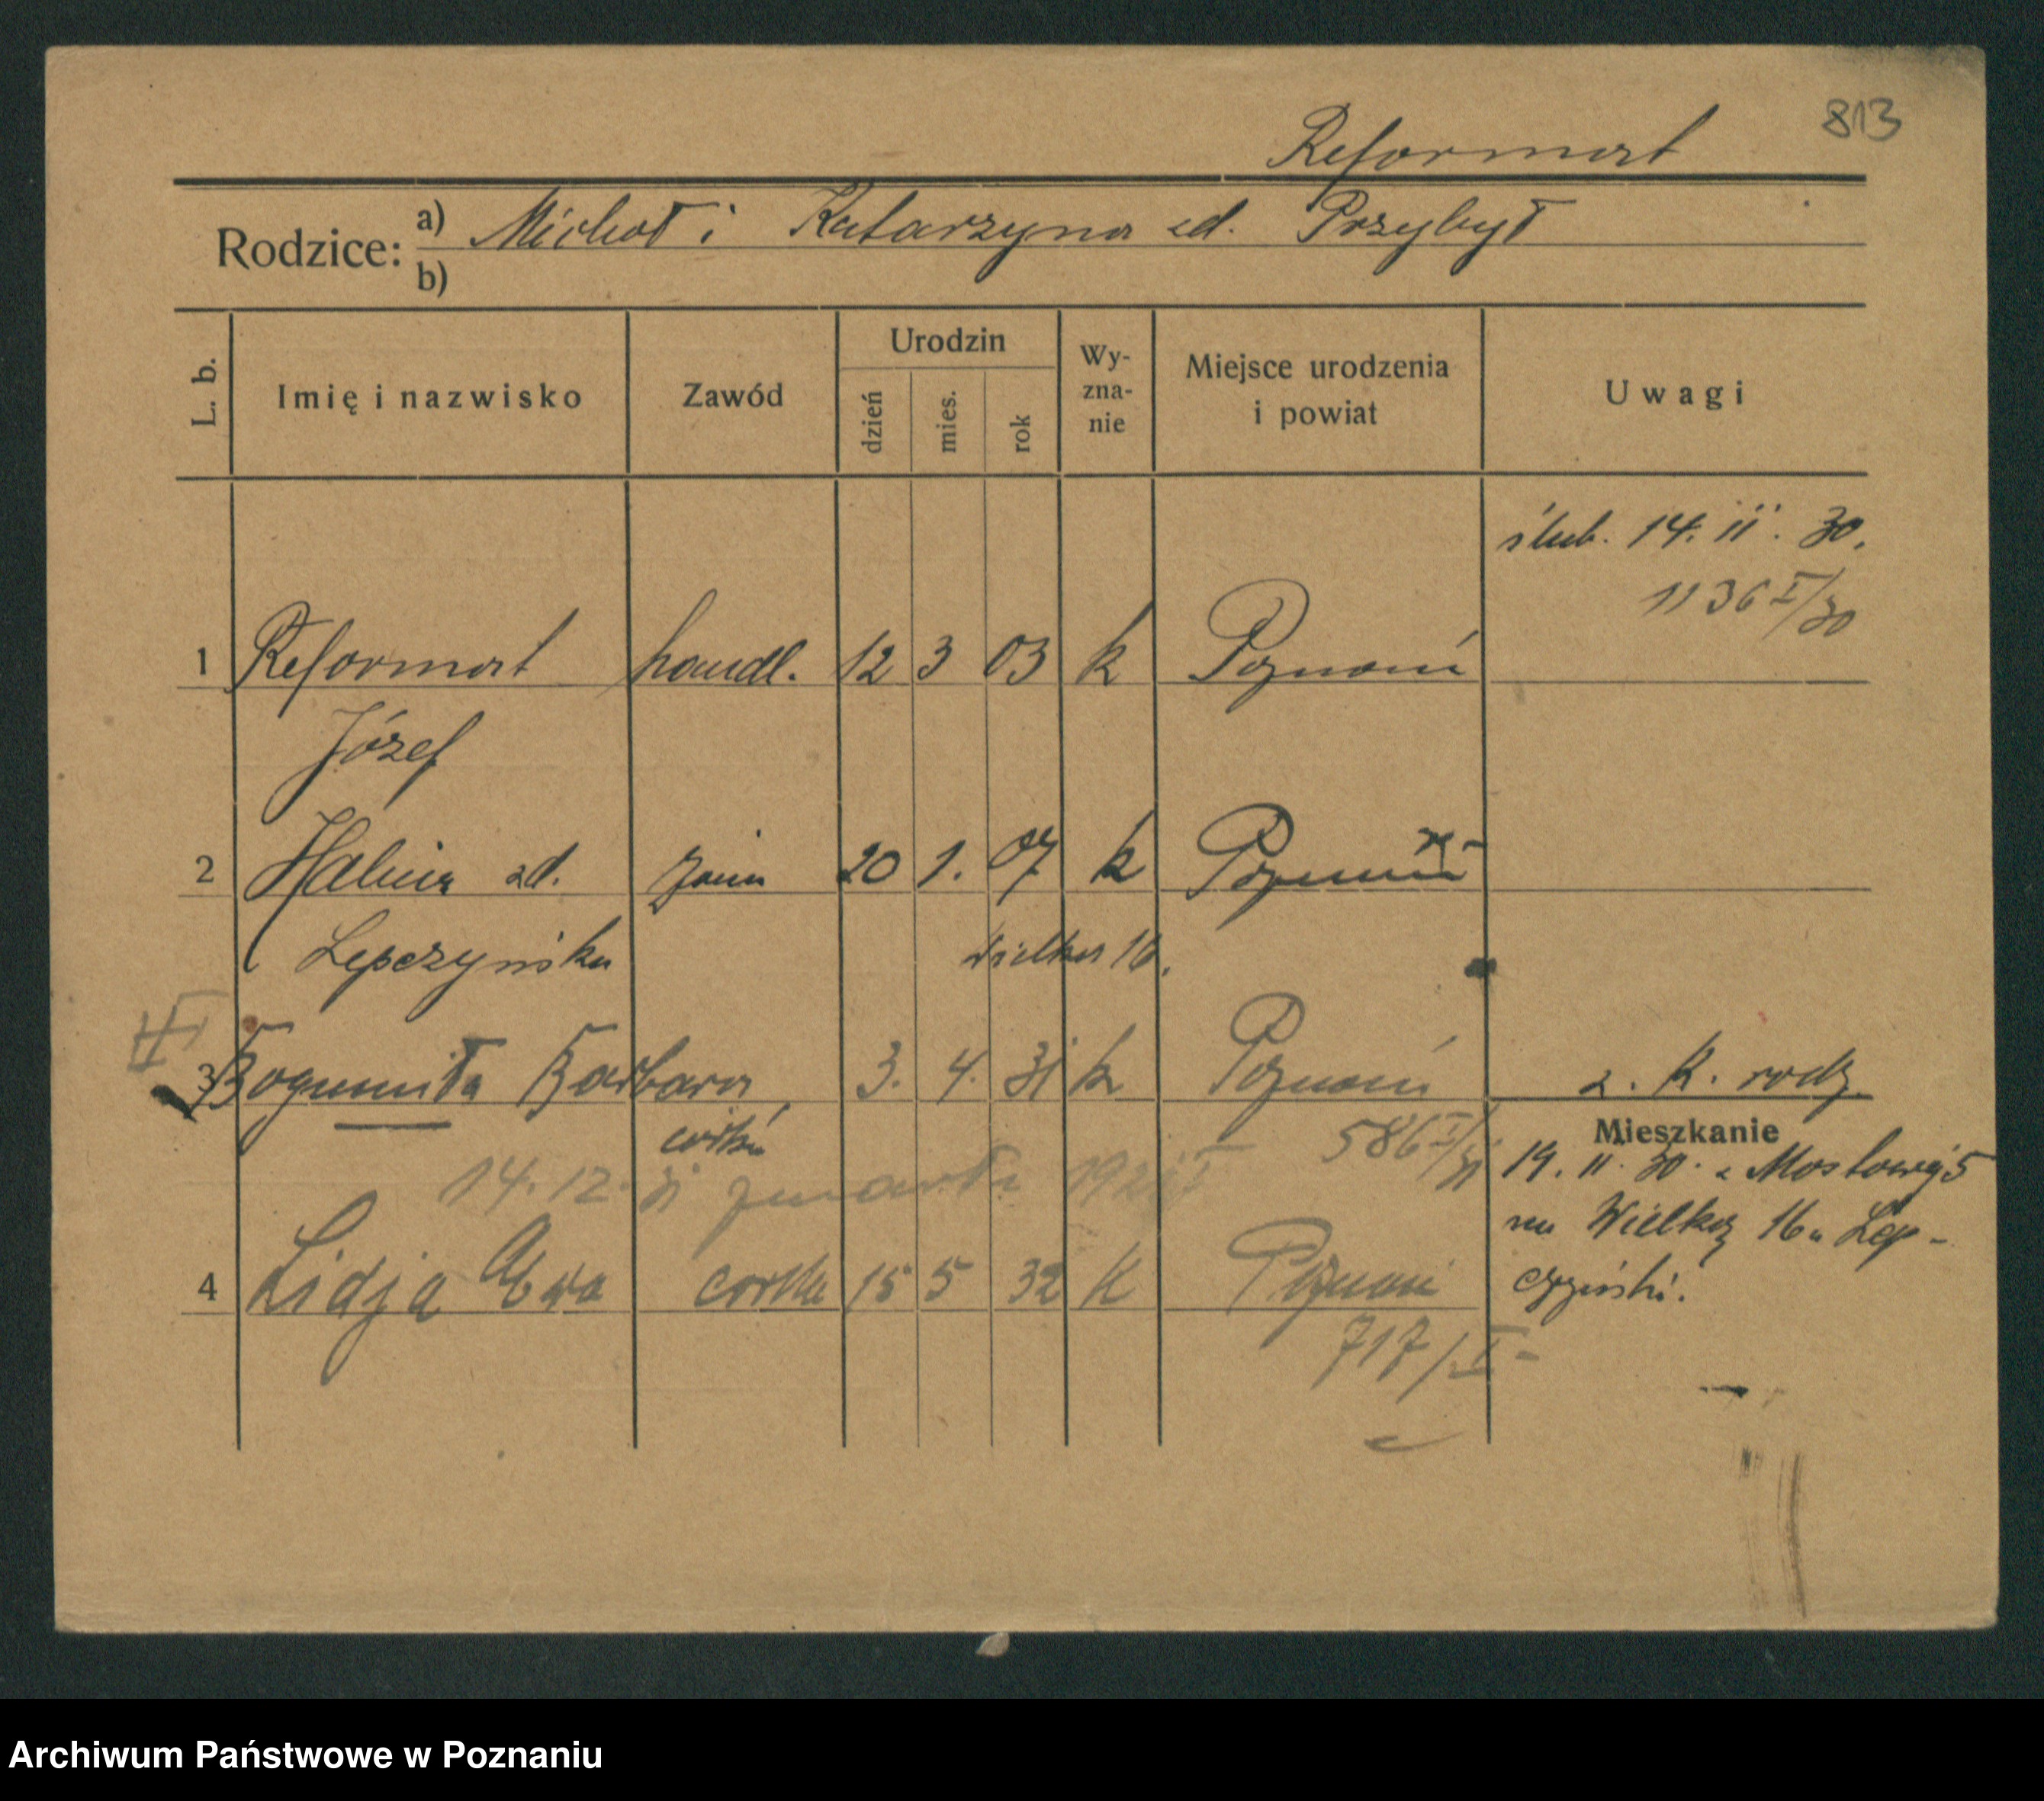 813
Reformat
Rodzice: a) Michał i Katarzyna zd. Przybył
b)
L. b. Imię i nazwisko Zawód Urodzin dzień mies. rok Wy-zna-nie Miejsce urodzenia i powiat Uwagi
ślub. 14. 11. 30.
1136 I/30
1 Reformat handl. 12 3 03 k Poznań
Józef
2 Halina zd. żona 20 1. 07 k Poznań
Lepczyńska Wielka 16.
3 Bogumiła Barbara 3. 4. 31 k Poznań z. K. rodz.
córka 586 I/31
Mieszkanie
14. 12. 31 zmarła
19. 11. 30. z Mostowej 5
na Wielką 16 u Lep-
czyński.
4 Lidja Ewa córka 15 5 32 K Poznań
717/I-
Archiwum Państwowe w Poznaniu